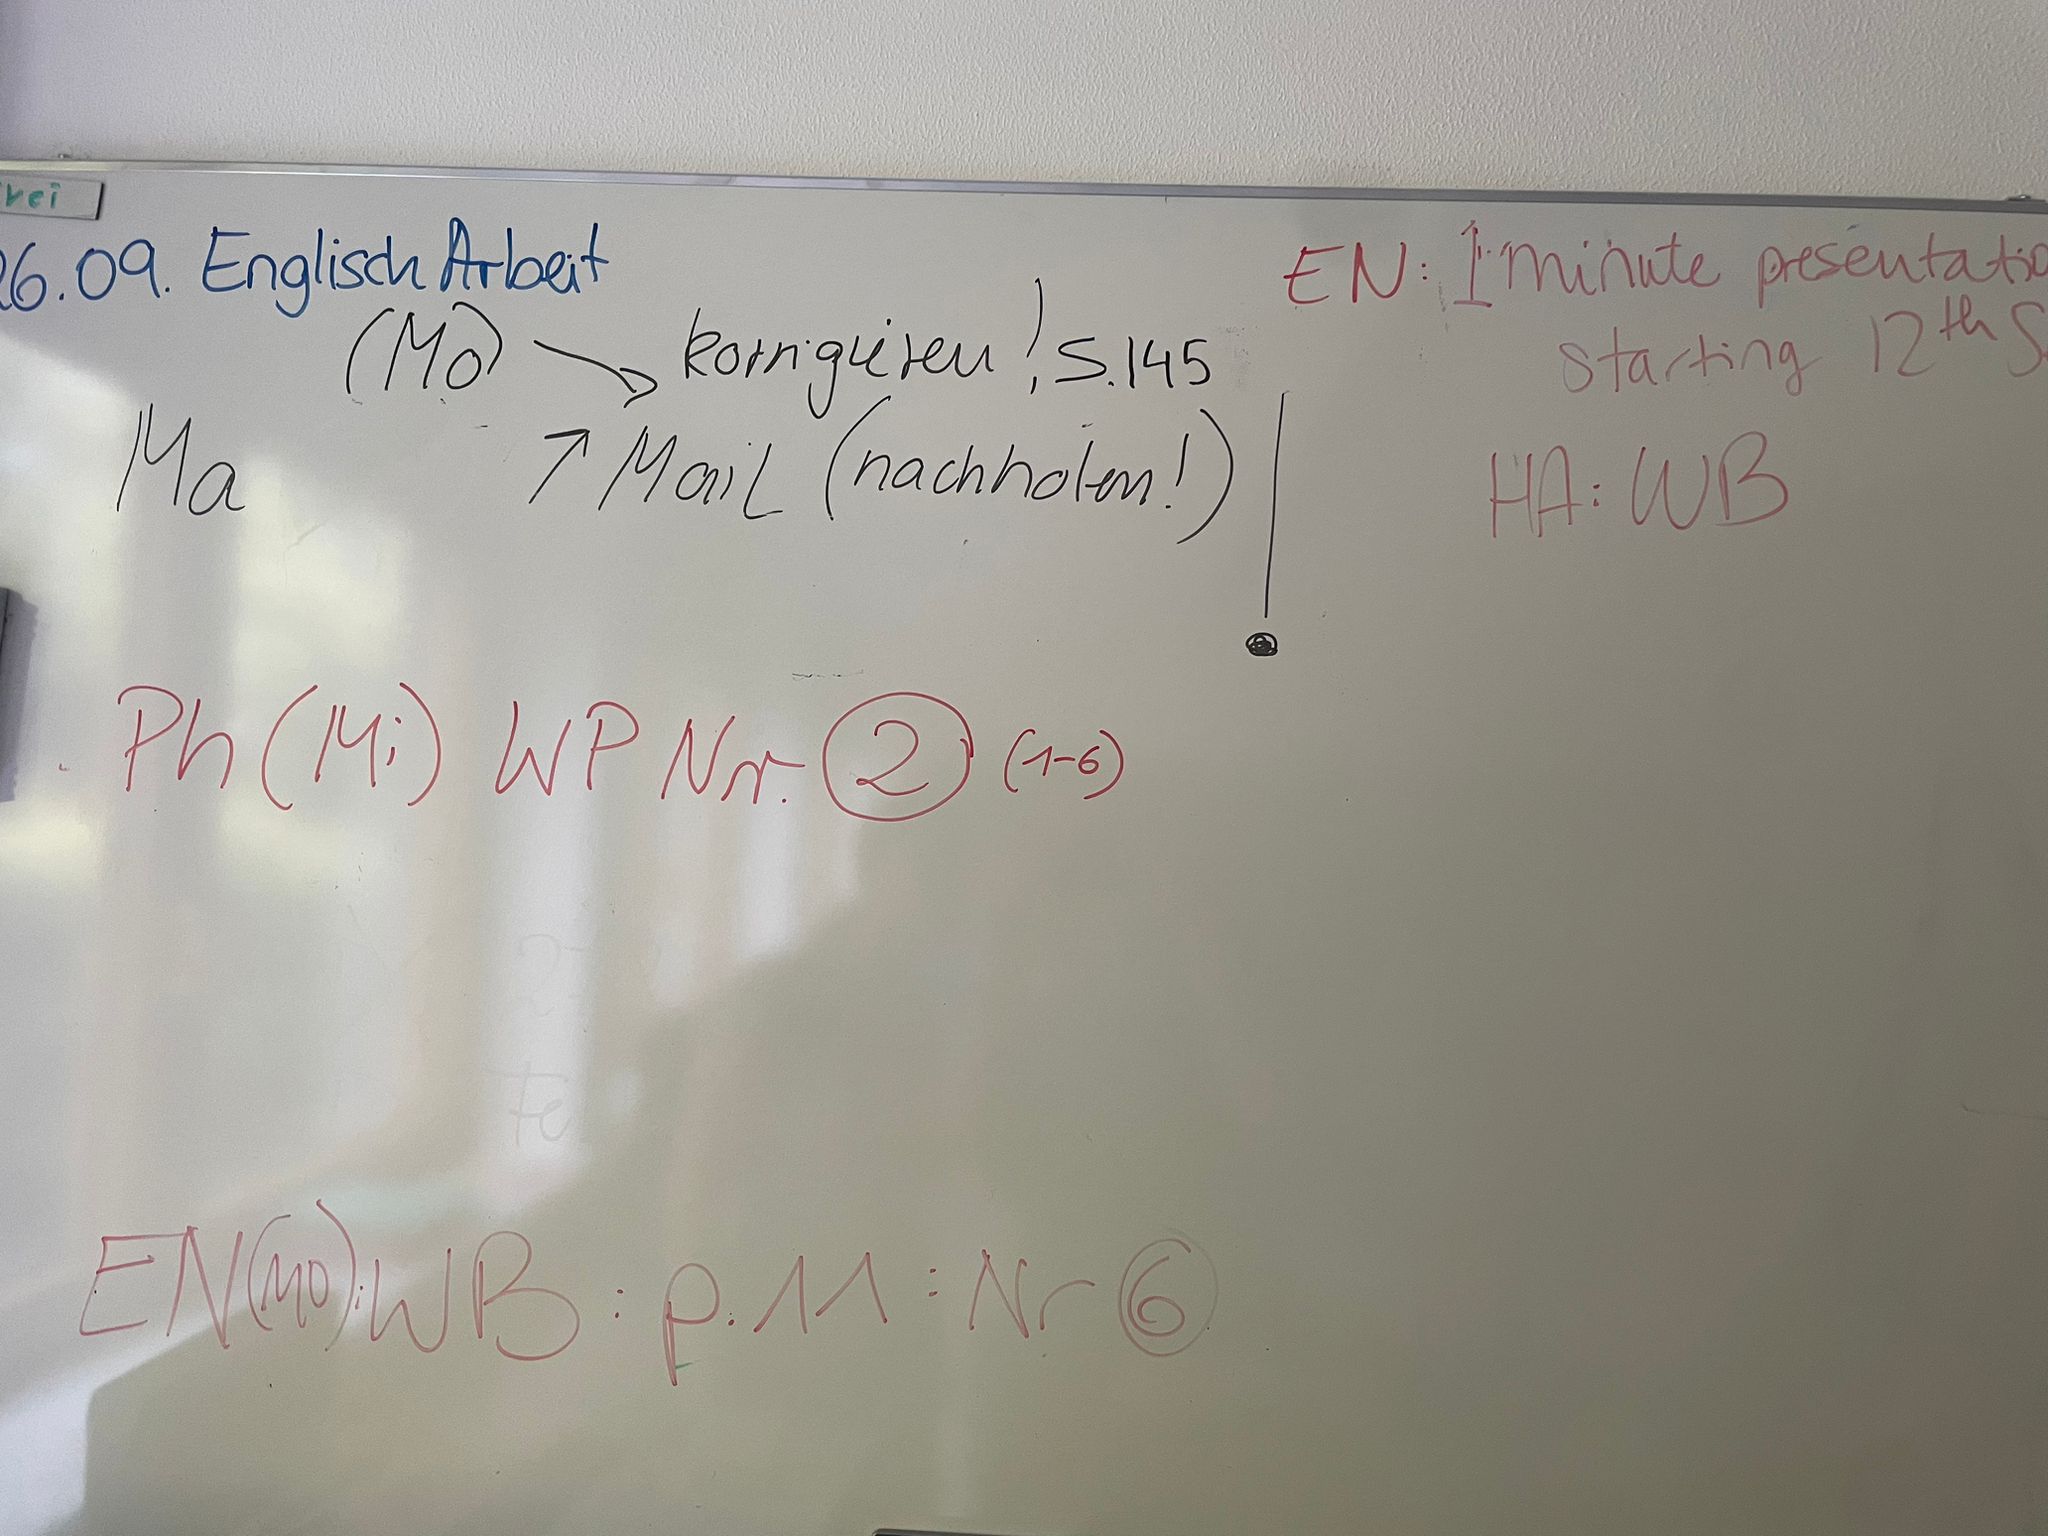 26.09. Englisch Arbeit
(Mo) → korrigieren! S.145
Ma ↗ Mail (nachholen!)
Ph (Mi) WP Nr. 2 (1-6)
EN(MO): WB: p.11: Nr 6
EN: 1 minute
starting 12th
HA: WB